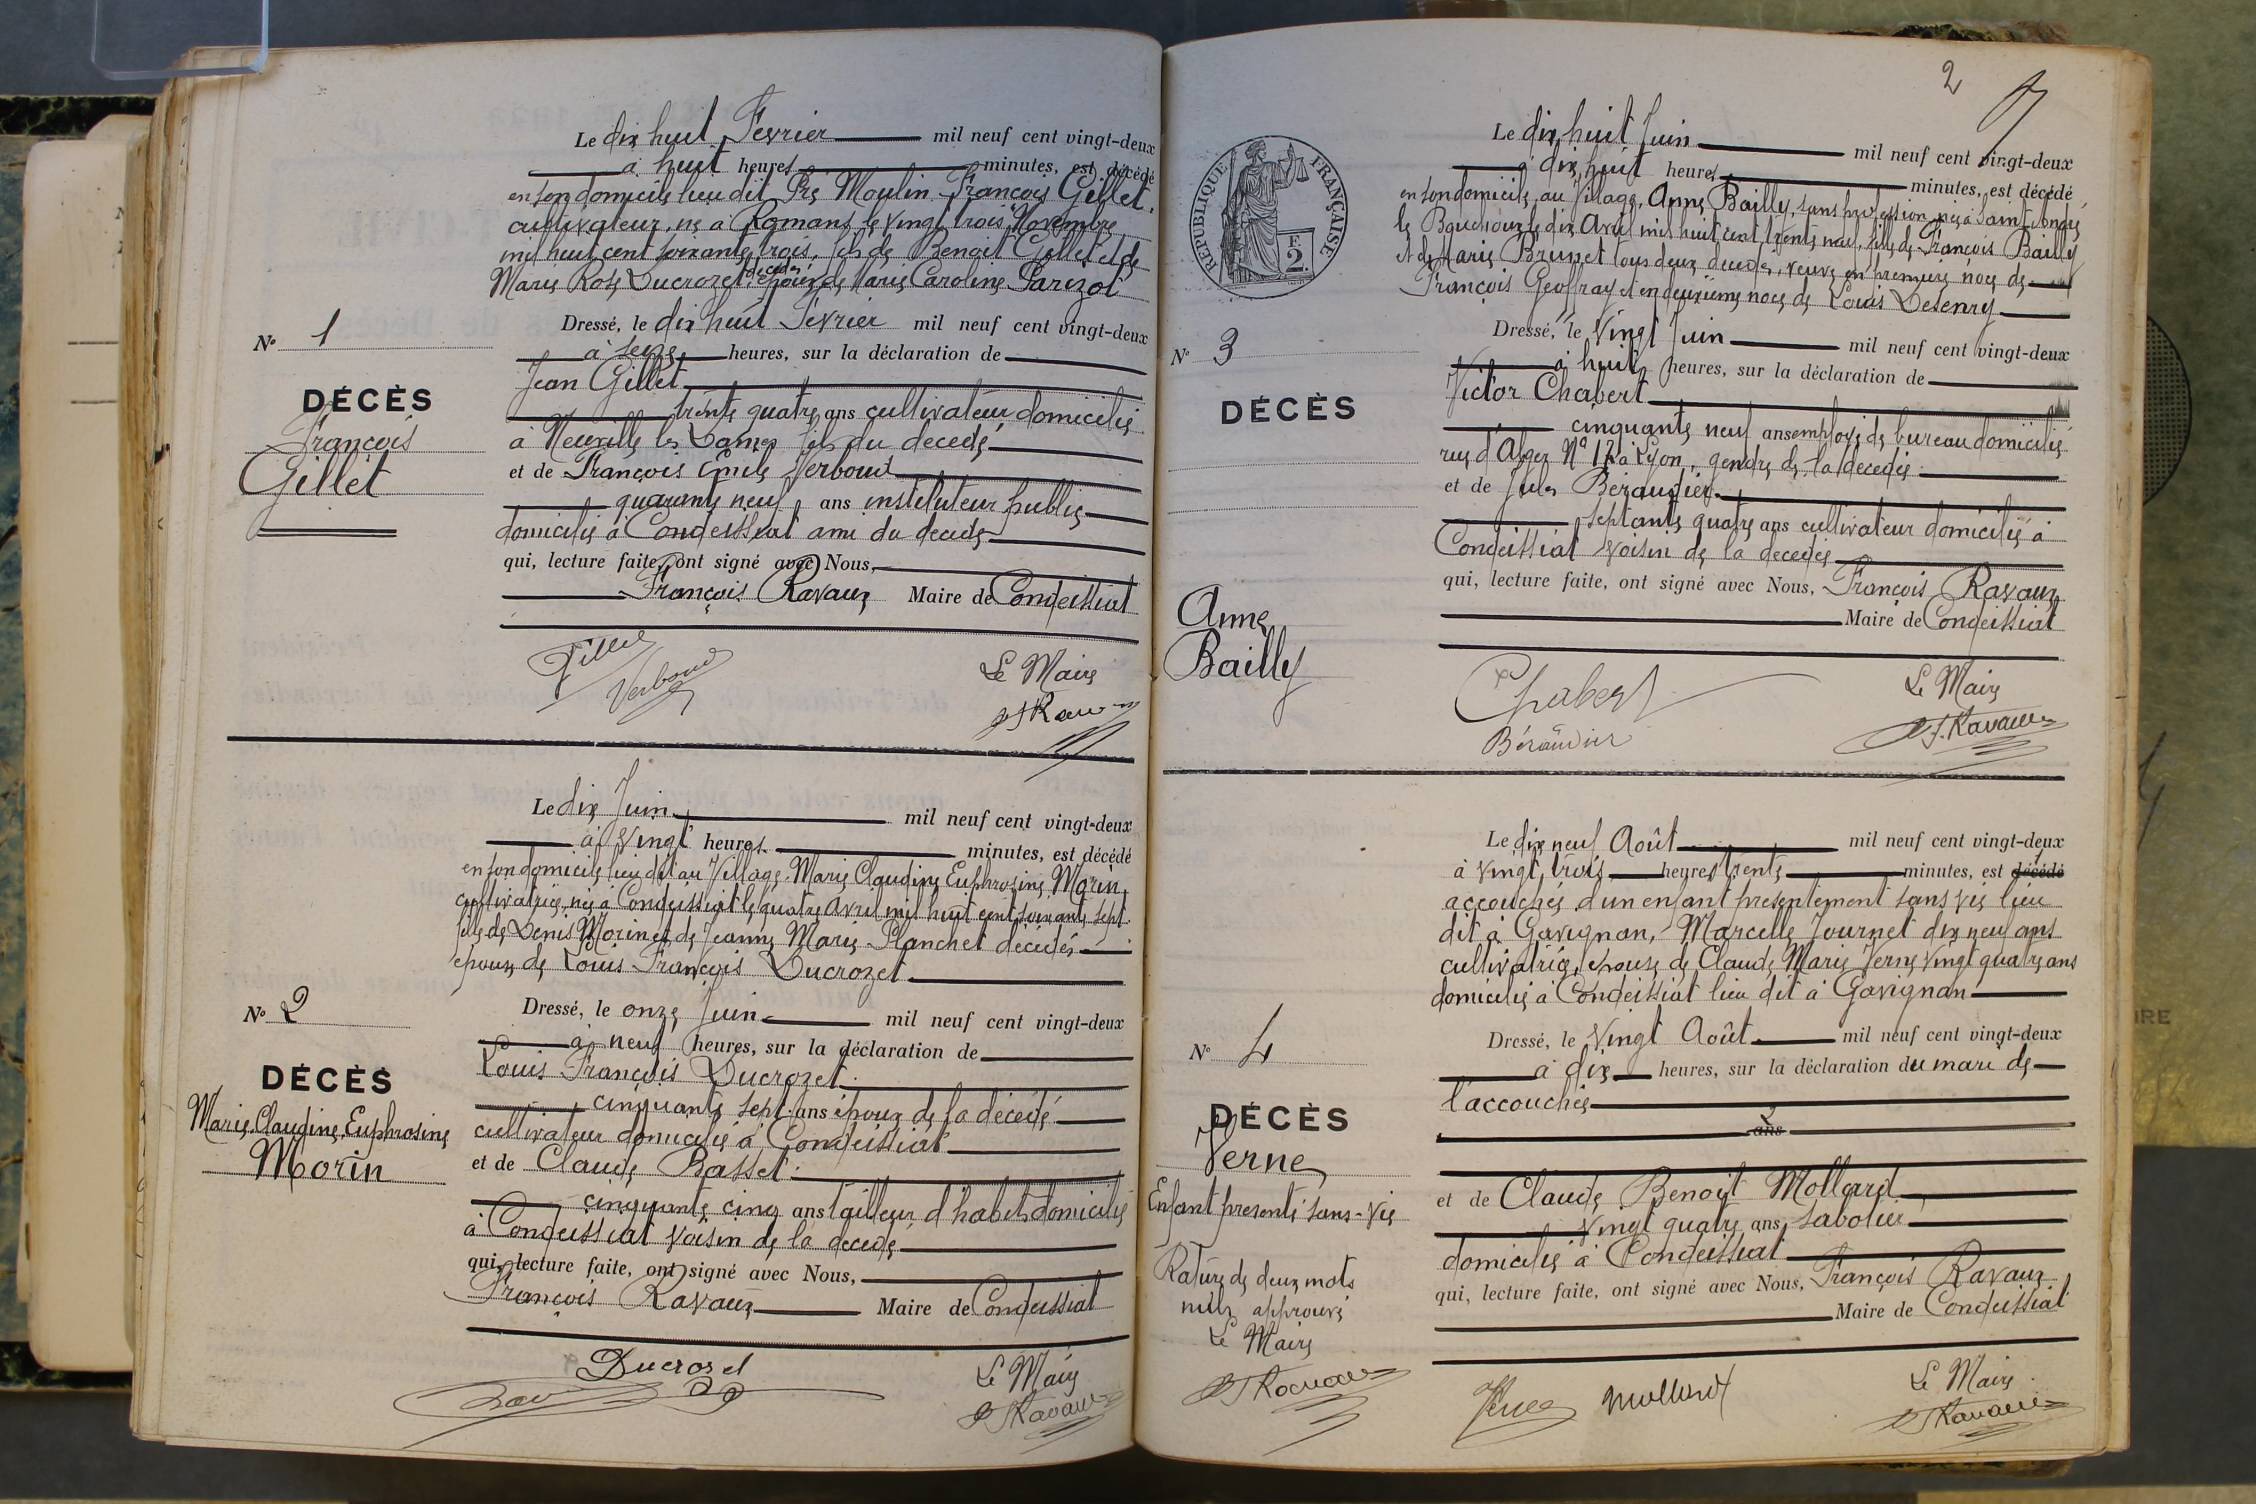 Le dix huit Fevrier mil neuf cent vingt-deux
à huit heures minutes, est décédé
en son domicile lieu dit Pré Moulin François Gillet,
cultivateur, né à Romans le vingt trois Novembre
mil huit cent soixante trois, fils de Benoit Gillet et de
Marie Rose Ducrozet décédés époux de Marie Caroline Parizot
N° 1
DÉCÈS
François
Gillet
Dressé, le dix huit Fevrier mil neuf cent vingt-deux
à seize heures, sur la déclaration de
Jean Gillet
trente quatre ans cultivateur domicilié
à Neuville les Dames fils du décédé
et de François Emile Verboud
quarante neuf ans instituteur public
domicilié à Condeissiat ami du décédé
qui, lecture faite, ont signé avec Nous,
François Ravaux Maire de Condeissiat
Gillet
Verboud
Le Maire
F. Ravaux
Le dix Juin mil neuf cent vingt-deux
à vingt heures minutes, est décédé
en son domicile lieu dit au Village, Marie Claudine Euphrosine Morin,
cultivatrice, née à Condeissiat le quatre Avril mil huit cent soixante sept
fille de Denis Morin et de Jeanne Marie Planchet décédés
épouse de Louis François Ducrozet
N° 2
DÉCÈS
Marie Claudine Euphrosine
Morin
Dressé, le onze Juin mil neuf cent vingt-deux
à neuf heures, sur la déclaration de
Louis François Ducrozet
cinquante sept ans époux de la décédé
cultivateur domicilié à Condeissiat
et de Claude Basset
cinquante cinq ans tailleur d'habits domicilié
à Condeissiat voisin de la décédé
qui, lecture faite, ont signé avec Nous,
François Ravaux Maire de Condeissiat
Ducrozet
Le Maire
F. Ravaux
2
RÉPUBLIQUE FRANÇAISE
F.
2
Le dix huit Juin mil neuf cent vingt-deux
à dix huit heures minutes, est décédé
en son domicile au Village, Anne Bailly, sans profession née à Saint
le dix Avril mil huit cent trente neuf, fille de François Bailly
et de Marie Brunet tous deux décédés, veuve en premières noces de
François Geoffray et en deuxième noces de Louis Desenry
N° 3
DÉCÈS
Anne
Bailly
Dressé, le vingt Juin mil neuf cent vingt-deux
à huit heures, sur la déclaration de
Victor Chabert
cinquante neuf ans employé de bureau domicilié
rue d'Alger N° 12 à Lyon, gendre de la décédée
et de Jules Beraudier
septante quatre ans cultivateur domicilié à
Condeissiat voisin de la décédée
qui, lecture faite, ont signé avec Nous, François Ravaux
Maire de Condeissiat
Chabert
Béraudier
Le Maire
F. Ravaux
Le dix neuf Août mil neuf cent vingt-deux
à vingt trois heures trente minutes, est décédé
accouchée d'un enfant presentement sans vie lieu
dit à Gavignan, Marcelle Journet dix neuf ans
cultivatrice, épouse de Claude Marie Verne vingt quatre ans
domiciliés à Condeissiat lieu dit à Gavignan
N° 4
DÉCÈS
Verne
Enfant presenté sans vie
Rature de deux mots
nuls approuvé
Le Maire
F. Ravaux
Dressé, le vingt Août mil neuf cent vingt-deux
à dix heures, sur la déclaration du mari de
l'accouchée
ans
et de Claude Benoît Mollard
vingt quatre ans, sabotier
domicilié à Condeissiat
qui, lecture faite, ont signé avec Nous, François Ravaux
Maire de Condeissiat
Verne
Mollard
Le Maire
F. Ravaux